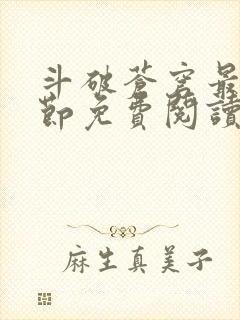 斗破蒼穹最
節免費閱讀
麻生真美子